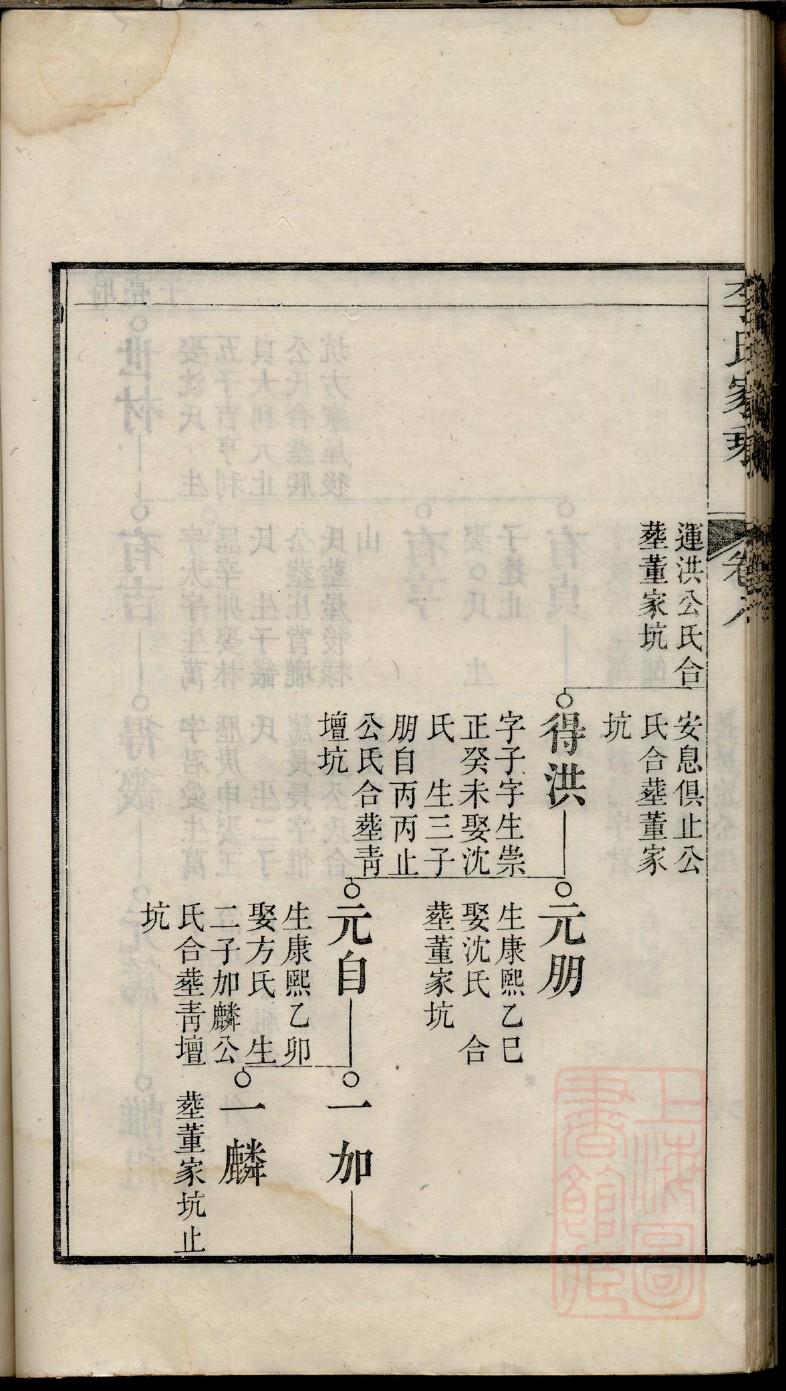 李氏家乘
卷六
運洪公氏合
塟董家坑
安息俱止公
氏合塟董家
坑
得洪
字子字生崇
正癸未娶沈
氏　生三子
朋自丙丙止
公氏合塟青
壇坑
元朋
生康熙乙巳
娶沈氏　合
塟董家坑
元自
生康熙乙卯
娶方氏　生
二子加麟公
氏合塟青壇
坑
一加
一麟
塟董家坑止
上海圖
書館藏